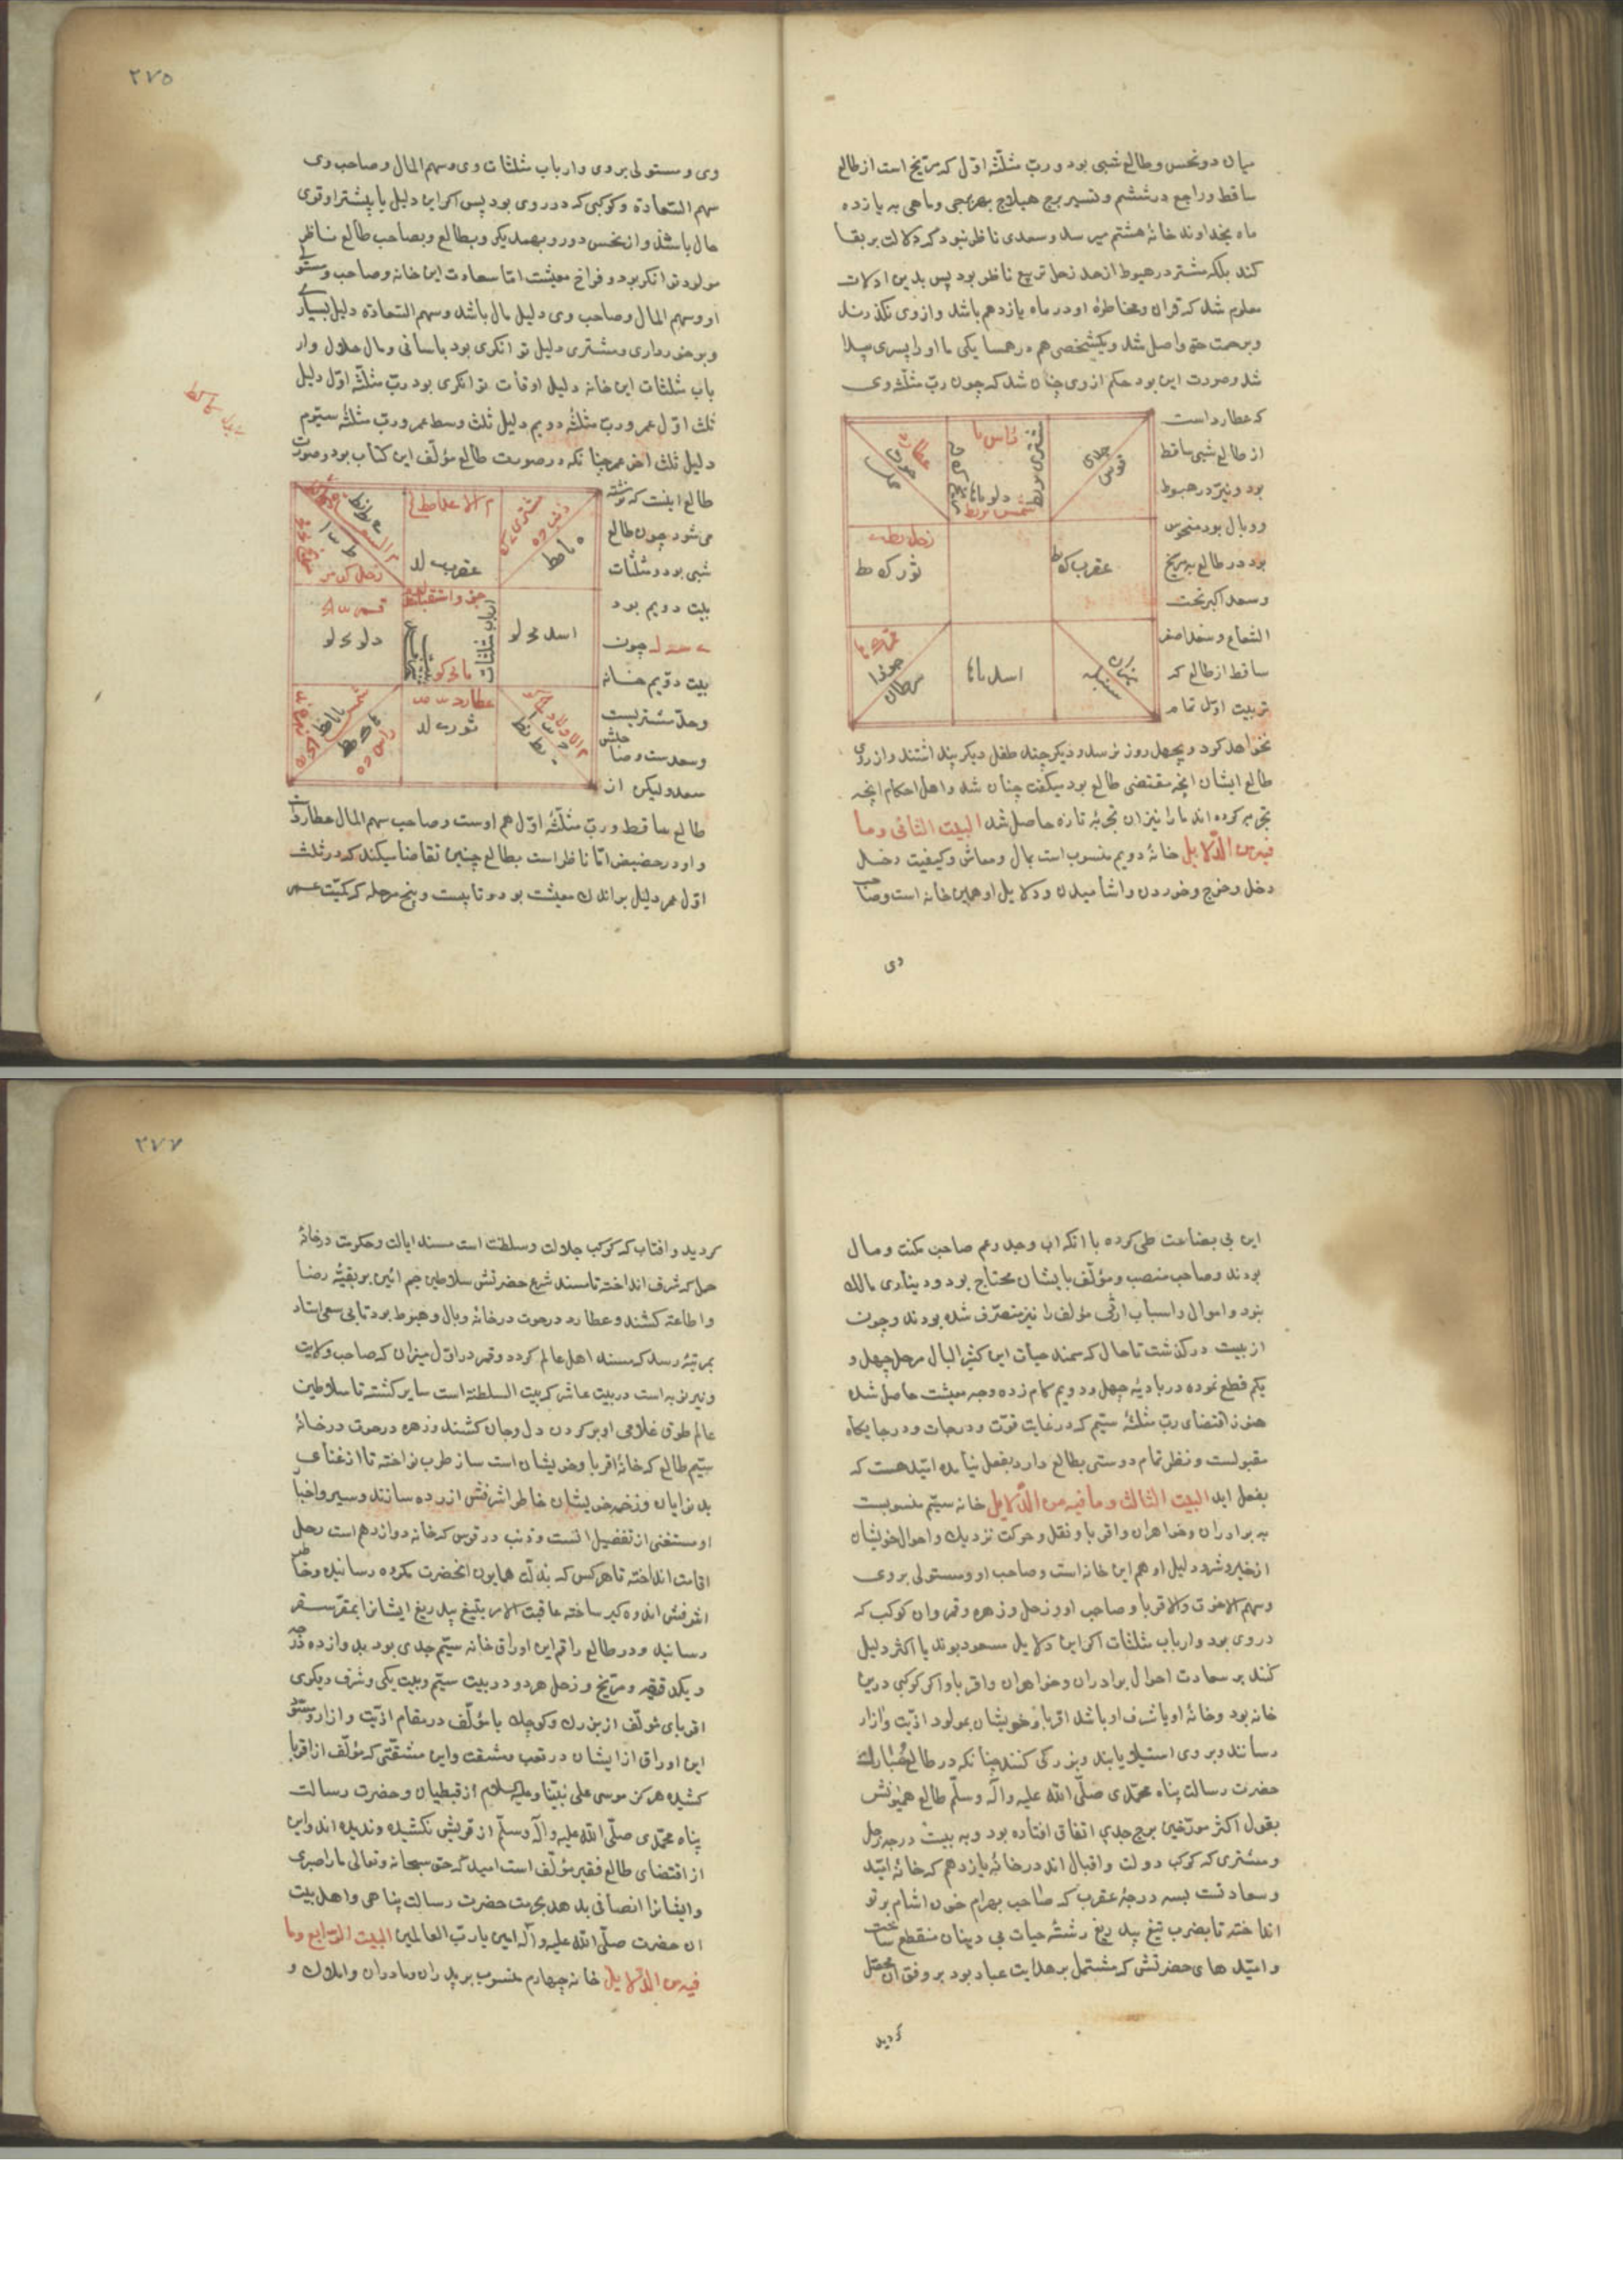 میان دو نحس و طالع شبی بود و ربّ مثلّثهٔ اوّل که مرّیخ است از طالع
ساقط و راجع در ششم و تسییر برج هیلاج بهر برجی و ماهی به یازده
ماه بخداوند خانهٔ هشتم میرسد و سعدی ناظر نبود که دلالت بر بقا
کند بلکه مشتری در هبوط از حد زحل تربیع ناظر بود پس بدین ادلات
معلوم شد که قران و مخاطرهٔ او در ماه یازدهم باشد و ازوی نگذرند
و برحمت حق واصل شد و یکشخصی هم در همسایکی ما او را پسری پیدا
شد و صورت این بود حکم از وی چنان شد که چون ربّ مثلّثه وی
که عطارد است
از طالع شبی ساقط
بود و نیّر در هبوط
و وبال بود منحوس
بود در طالع به مریخ
و سعد اکبر تحت
الشعاع و سعد اصغر
ساقط از طالع که
تربیت اوّل تمام
راس ما
دلو ما
جدی
قوس
عقرب ک ط
ثور ک ط
میزان
سنبله
اسد ما
جوزا
سرطان
نخواهد کرد و بچهل روز نرسد و دیگر چند طفل دیگر پیدا شدند و از روی
طالع ایشان انچه مقتضی طالع بود میگفت چنان شد و اهل احکام انچه
تجربه کرده اند ما را نیز ان تجربهٔ تازه حاصل شد البیت الثانی وما
فیه من الدّلایل خانهٔ دویم منسوب است بمال و معاش و کیفیت دخل
دخل و خرج و خوردن و اشامیدن و دلایل او همین خانه است و صاحب
وی
۲۷۵
وی و مستولی بر وی و ارباب مثلثات وی و سهم المال و صاحب وی
سهم السّعادة و کوکبی که در وی بود پس اکر این دلیل یا بیشتر او قوی
حال باشد و از نحس دور و بهمدیکر و بطالع و بصاحب طالع ناظر
مولود توانکر بود و فراخ معیشت امّا سعادت این خانه و صاحب و مستولی
او و سهم المال و صاحب وی دلیل مال باشد و سهم السّعادة دلیل بسیاری
و برخورداری و مشتری دلیل توانکری بود باسانی و مال حلال و ار
باب مثلثات این خانه دلیل اوقات توانکری بود ربّ مثلّثهٔ اوّل دلیل
ثلث اوّل عمر و ربّ مثلّثهٔ دویم دلیل ثلث وسط عمر و ربّ مثلّثهٔ سیّوم
دلیل ثلث اخر عمر چنانکه در صورت طالع مؤلّف این کتاب بود و صورت
طالع اینست که نوشته
می شود چون طالع
شبی بود و مثلّثات
بیت دویم بود
چون
بیت دویم خانه
و حدّ مشتریست
و سعدست و صاحب
سعد و لیکن از
عقرب لد
اسد لو
دلو لو
ثور لد
طالع ساقط و ربّ مثلّثهٔ اوّل هم اوست و صاحب سهم المال عطارد است
و او در حضیض امّا ناظر است بطالع چنین تقاضا میکند که در ثلث
اوّل عمر دلیل بر اندک معیشت بود و تا بیست و پنج مرحله که کمیّت عمر
این بی بضاعت طی کرده با انکه اب و جد و عم صاحب مکنت و مال
بودند و صاحب منصب و مؤلّف بایشان محتاج بود و دیناری مالک
نبود و اموال و اسباب ارثی مؤلف را نیز متصرّف شده بودند و چون
از بیست درکذشت تا حال که سمند حیات این کثیر البال مرحل چهل و
یکم قطع نموده در بادیهٔ چهل و دویم کام زده وجه معیشت حاصل شده
هنوز اقتضای ربّ مثلّثهٔ سیّم که در غایت قوّت و درجات و در جایکاه
مقبولست و نظر تمام دوستی بطالع دارد بفعل نیامده امّید هست که
بفعل اید البیت الثالث وما فیه من الدّلایل خانه سیّم منسوبست
به برادران و خواهران و اقربا و نقل و حرکت نزدیک و احوال خویشان
از خیر و شر و دلیل او هم این خانه است و صاحب او و مستولی بر وی
و سهم الاخوة والاقربا و صاحب او و زحل و زهره و قمر و ان کوکب که
در وی بود و ارباب مثلثات اکر این دلایل مسعود بوند یا اکثر دلیل
کنند بر سعادت احوال برادران و خواهران و اقربا و اکر کوکبی درین
خانه بود و خانهٔ او یا شرف او باشد اقربا و خویشان بمولود اذیّت و ازار
رسانند و بر وی استیلا یابند و بزرکی کنند چنانکه در طالع مبارک
حضرت رسالت پناه محمّدی صلّی الله علیه وآله وسلّم طالع همیونش
بقول اکثر مورّخین برج جدی اتفاق افتاده بود و به بیست درجه زحل
و مشتری که کوکب دولت و اقبال اند در خانهٔ یازدهم که خانهٔ امّید
و سعادتست بسه درجهٔ عقرب که صاحب بهرام خون اشام پرتو
انداخته تا بضرب تیغ بیدریغ رشتهٔ حیات بی دینان منقطع ساخت
و امیّدهای حضرتش که مشتمل بر هدایت عباد بود بر وفق ان محصّل
کردید
۲۷۷
کردید و افتاب که کوکب جلالت و سلطنت است مسند ایالت و حکومت در خانهٔ
حمل که شرف انداخته تا مسند شرع حضرتش سلاطین جم ائین بر بقیّهٔ رضا
و اطاعته کشند و عطارد در حوت در خانهٔ وبال و هبوط بود تا بی سعی استاد
بمرتبهٔ رسد که مسند اهل عالم کردد و قمر در اوّل میزان که صاحب ولایت
و نیر نوبه است در بیت عاشر که بیت السلطنة است سایر کشته تا سلاطین
عالم طوق غلامی او بر کردن دل و جان کشند و زهره در حوت در خانهٔ
سیّم طالع که خانهٔ اقربا و خویشان است ساز طرب نواخته تا از غنای
بد نوایان و زخمه خویشان خاطر اشرفش ازرده سازند و سیر و اخبار
او مستغنی از تفضیل است و ذنب در قوس که خانه دوازدهم است رحل
اقامت انداخته تا هر کس که بذات همایون انحضرت مکروه رسانیده و خاطر
اشرفش اندوه کیر ساخته عاقبت الامر بتیغ بیدریغ ایشانرا بمقرّ سقر
رسانید و در طالع راقم این اوراق خانه سیّم جدی بود بدوازده درجه
و یکدقیقه و مرّیخ و زحل هر دو در بیت سیّم و بیت یکی و شرف دیکری
اقربای مؤلّف از بزرک و کوچک با مؤلّف در مقام اذیّت و ازار و مستو
این اوراق از ایشان در تعب و مشقت و این مشقّتی که مؤلّف از اقربا
کشیده هرکز موسی علی نبیّنا وعلیه السلام از قبطیان و حضرت رسالت
پناه محمّدی صلّی الله علیه وآله وسلّم از قریش نکشیده و ندیده اند و این
از اقتضای طالع فقیر مؤلّف است امید که حق سبحانه وتعالی ما را صبری
و ایشانرا انصافی بدهد بحرمت حضرت رسالت پناهی و اهل بیت
ان حضرت صلّی الله علیه وآله امین یا ربّ العالمین البیت الرّابع وما
فیه من الدّلایل خانه چهارم منسوب بر پدران و مادران و املاک و